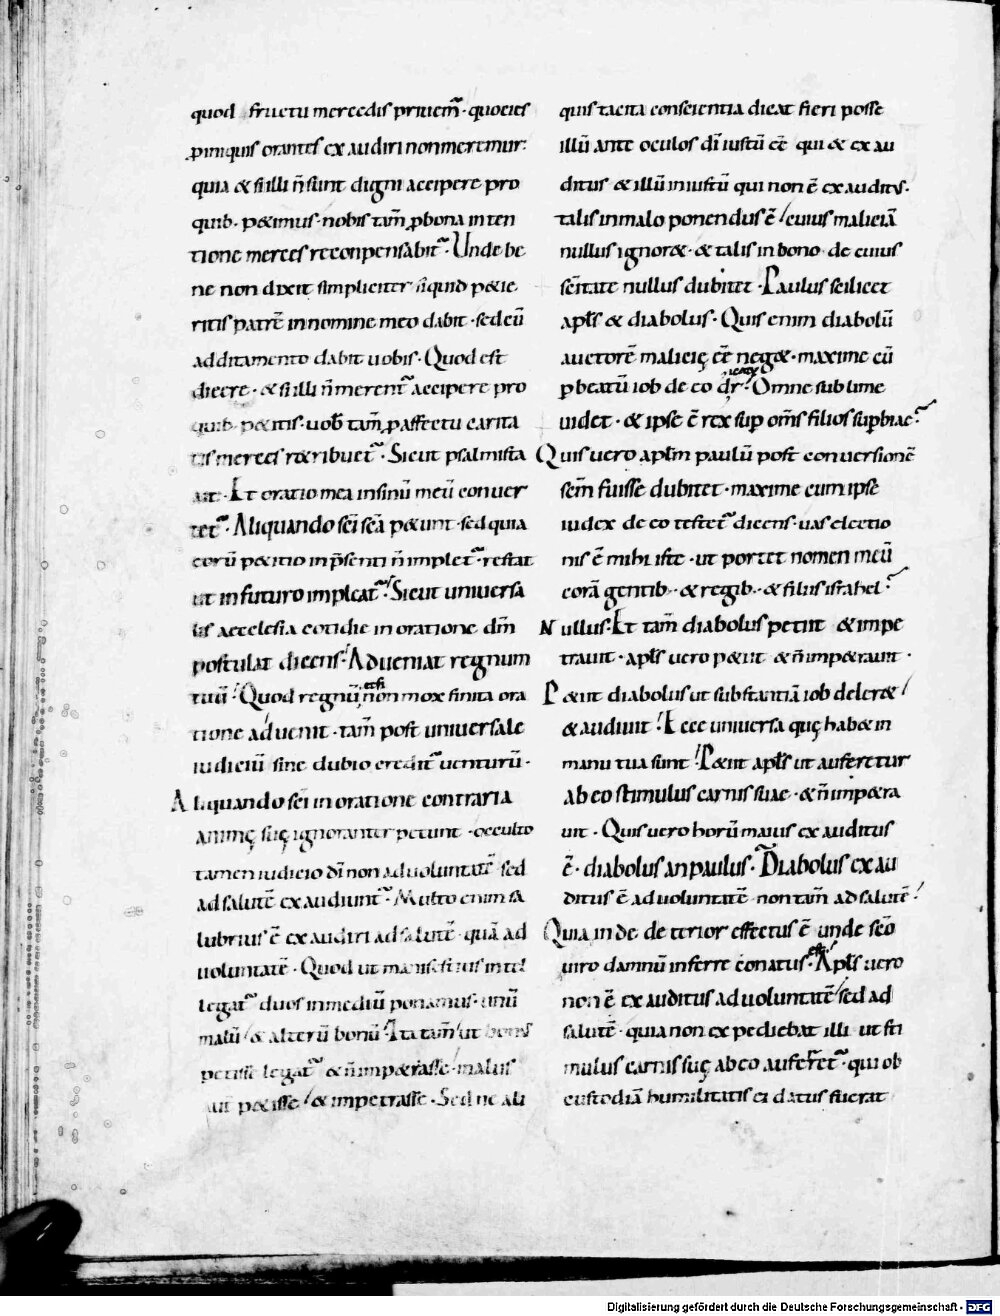 quod fructu mercedis priuem̃· quociens
ꝓ iniquis orantes exaudiri non meremur·
quia & si illi ñ sunt digni accipere pro
quib· p&imus· nobis tam̃ ꝓ bona inten
tione merces reconpensabit̃· Unde be
ne non dixit simpliciter siquid p&ie
ritis patrē in nomine meo dabit· sed cū
additamento dabit uobis· Quod est
dicere· & si illi ñ merent̃ accipere pro
quib· p&itis· uob̃ tam̃ ꝓ affectu carita
tis merces r&ribuet̃· Sicut psalmista
ait· Et oratio mea in sinū meū conuer
tet̃· Aliquando sc̄i sc̄a p&unt· sed quia
eorū p&itio in p̄senti ñ implet̃· restat
ut in futuro impleat̃· Sicut uniuersa
lis aecclesia cotidie in oratione dm̄
postulat dicens· Adueniat regnum
tuū· Quod regnū &si non mox finita ora
tione aduenit· tam̃ post uniuersale
iudiciū sine dubio credit̃ uenturū·
Aliquando sc̄i in oratione contraria
animę suę ignoranter petunt· occulto
tamen iudicio dī non ad uoluntatē sed
ad salutē exaudiunt̃· Multo enim sa
lubrius ē exaudiri ad salutē quā ad
uoluntatē· Quod ut manifestius intel
legat̃ duos in mediū ponamus· unū
malū & alterū bonū· Ita tam̃ ut bonus
petisse legat̃ & ñ imp&rasse· malus
aut p&isse & impetrasse· Sed ne ali
quis tacita conscientia dicat fieri posse
illū ante oculos dī iustū ēē qui & exau
ditus & illū iniustū qui non ē exauditus·
talis in malo ponendus ē cuius maliciā
nullus ignor&· & talis in bono de cuius
sc̄itate nullus dubitet· Paulus scilicet
apl̄s & diabolus· Quis enim diabolū
auctorē malicię ēē neg&· maxime cū
ꝑ beatū iob de eo dr̄· Omne sublime
uidet· & ipse ē rex sup om̄s filios supbiae?
Quis uero aplm̄ paulū post conuersionē
sc̄m fuisse dubitet· maxime cum ipse
iudex de eo testet̃ dicens· uas electio
nis ē mihi iste· ut portet nomen meū
corā gentib· & regib· & filiis israhel?
Nullus· Et tam̃ diabolus petiit & impe
trauit· apl̄s uero p&iit & ñ imp&rauit·
P&iit diabolus ut substantiā iob deler&
& audiuit· Ecce uniuersa quę hab& in
manu tua sunt· P&iit apl̄s ut auferetur
ab eo stimulus carnis suae· & ñ imp&ra
uit· Quis uero horū maius exauditus
ē· diabolus an paulus· Diabolus exau
ditus ē ad uoluntatē non tam̃ ad salutē·
Quia inde deterior effectus ē unde sc̄o
uiro damnū inferre conatus· ē Apl̄s uero
non ē exauditus ad uoluntatē sed ad
salutē· quia non expediebat illi ut sti
mulus carnis suę ab eo auferret̃· qui ob
custodiā humilitatis ei datus fuerat
Digitalisierung gefördert durch die Deutsche Forschungsgemeinschaft - DFG